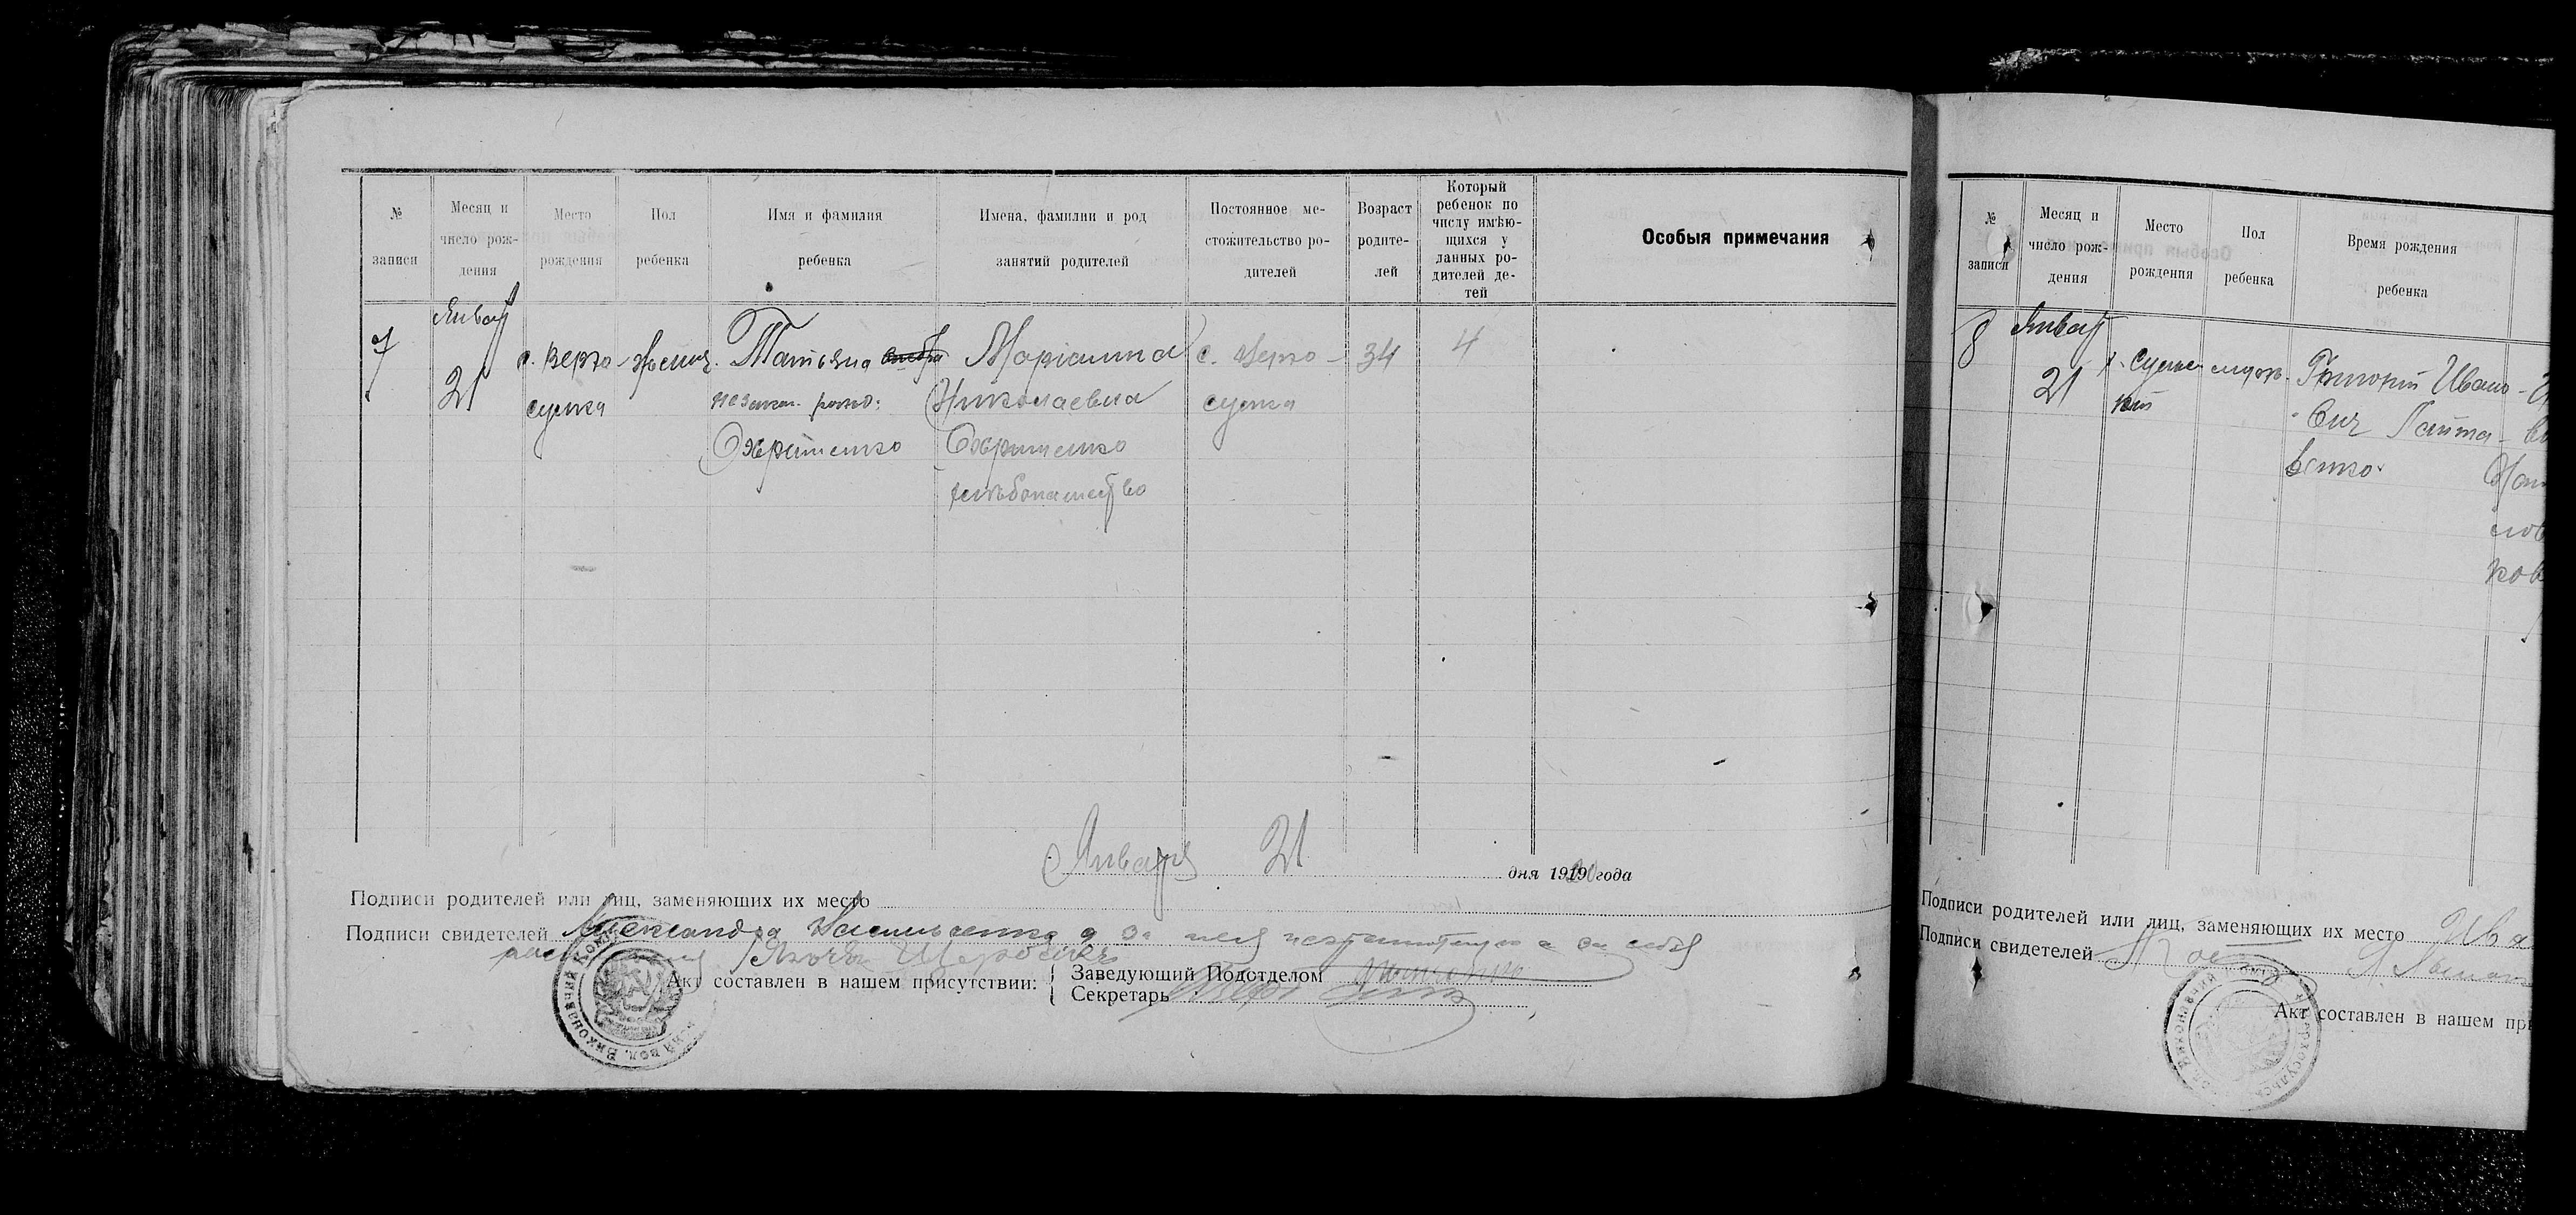 № записи
Месяц и число рождения
Место рождения
Пол ребенка
Имя и фамилия ребенка
Имена, фамилии и род занятий родителей
Постоянное местожительство родителей
Возраст родителей
Который ребенок по числу имѣющихся у данных родителей детей
Особыя примечания
7
Январ
21
с. Верхо-
сулка
женск.
Татьяна
незакон. рожд.
Охрименко
Маріанна
Николаевна
Охрименко
хлѣбопашество
с. Верхо-
сулка
34
4
Январь 21 дня 1920 года
Подписи родителей или лиц, заменяющих их место
Подписи свидетелей Александра Васильченко а за нея неграмотную и за себя
Яковъ
Акт составлен в нашем присутствии:
Заведующий Подотделом
Секретарь
№ записи
Месяц и число рождения
Место рождения
Пол ребенка
Время рождения ребенка
8
Январ
21
х. Сулкс
кий
муж.
Григорий Ивано-
вич Гайта-
Подписи родителей или лиц, заменяющих их место Ива
Подписи свидетелей
Акт составлен в нашем при